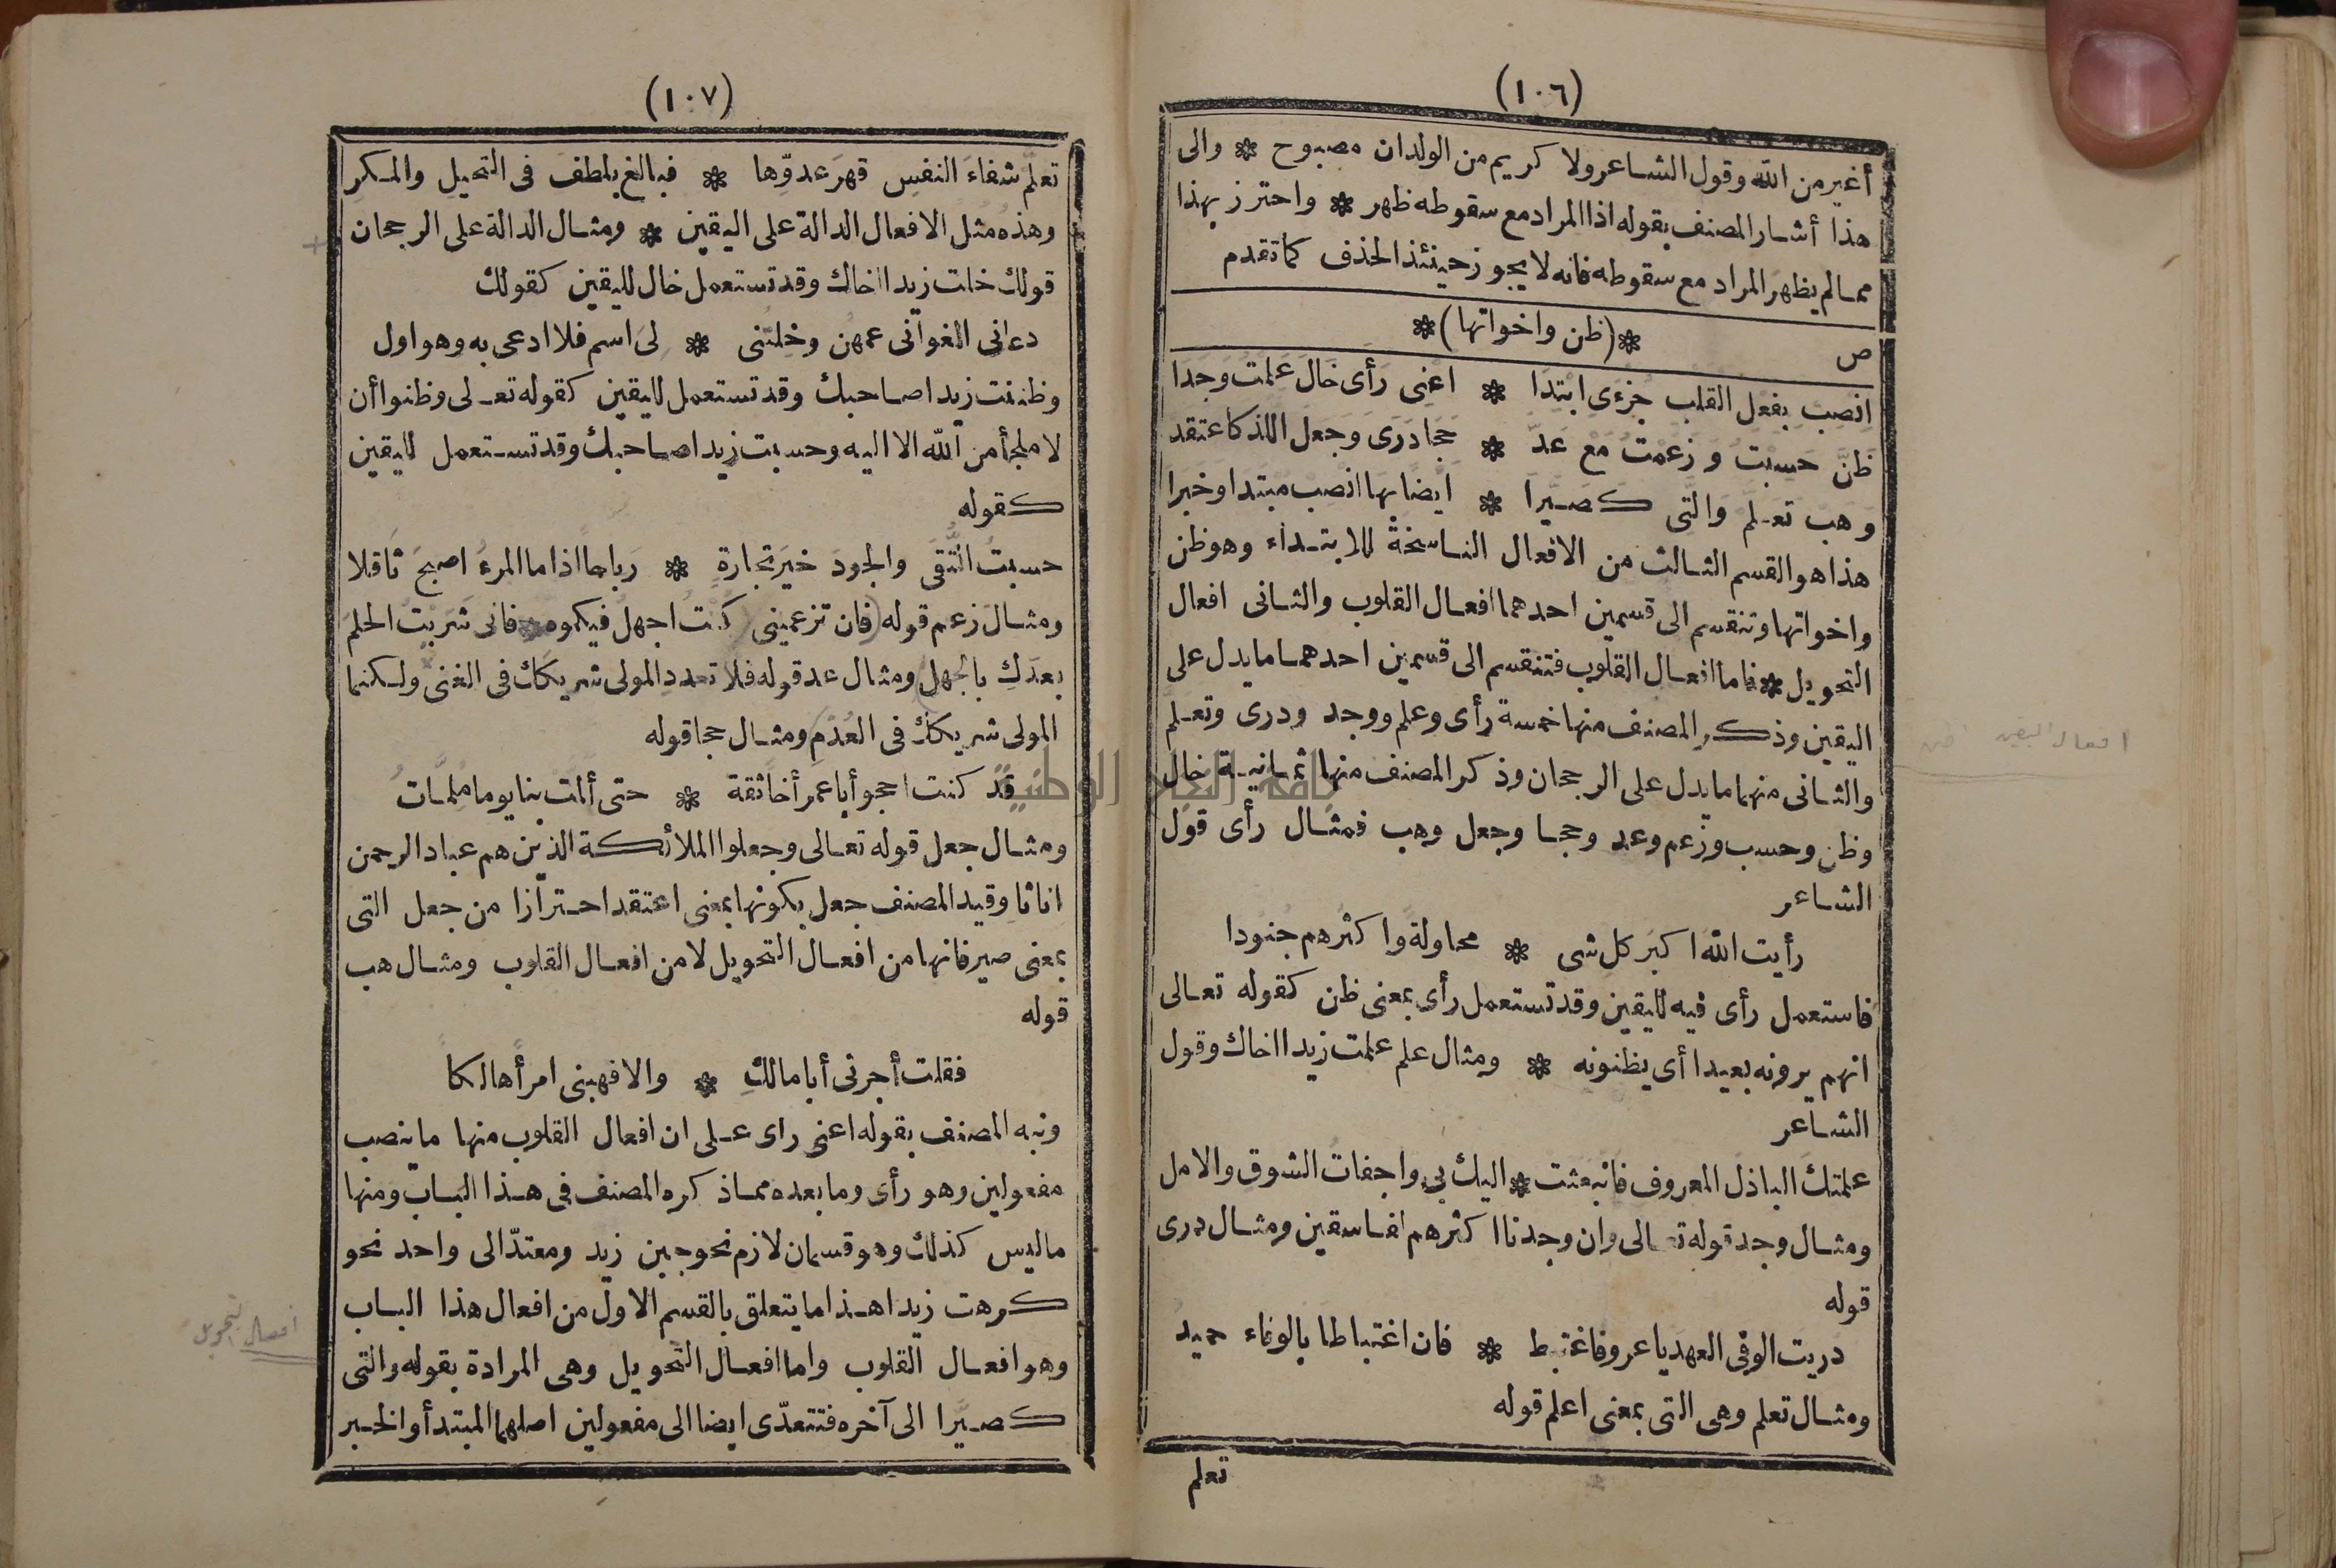 (١٠٦)
أغير من الله وقول الشاعر ولا كريم من الولدان مصبوح * والى
هذا أشار المصنف بقوله اذا المراد مع سقوطه ظهر * واحترز بهذا
مما لم يظهر المراد مع سقوطه فانه لا يجوز حينئذ الحذف كما تقدم
*(ظن واخواتها)*
ص
انصب بفعل القلب جزءى ابتدا * اعنى رأى خال علمت وجدا
ظنّ حسبت وزعمت مع عدّ * حجا درى وجعل اللذ كاعتقد
وهب تعلم والتى كصيرا * ايضا بها انصب مبتدا وخبرا
هذا هو القسم الثالث من الافعال الناسخة للابتداء وهو ظن
واخواتها وتنقسم الى قسمين احدهما افعال القلوب والثانى افعال
التحويل * فاما افعال القلوب فتنقسم الى قسمين احدهما ما يدل على
اليقين وذكر المصنف منها خمسة رأى وعلم ووجد ودرى وتعلم
والثانى منهما ما يدل على الرجحان وذكر المصنف منها ثمانية خال
وظن وحسب وزعم وعد وحجا وجعل وهب فمثال رأى قول
الشاعر
رأيت الله اكبر كل شى * محاولة واكثرهم جنودا
فاستعمل رأى فيه لليقين وقد تستعمل رأى بمعنى ظن كقوله تعالى
انهم يرونه بعيدا أى يظنونه * ومثال علم علمت زيدا اخاك وقول
الشاعر
علمتك الباذل المعروف فانبعثت * اليك بى واجفات الشوق والامل
ومثال وجد قوله تعالى وان وجدنا اكثرهم لفاسقين ومثال درى
قوله
دريت الوفى العهد يا عرو فاغتبط * فان اغتباطا بالوفاء حميد
ومثال تعلم وهى التى بمعنى اعلم قوله
تعلم
افعال اليقين
(١٠٧)
تعلّم شفاءَ النفسِ قهرَ عدوّها * فبالغ بلطف فى التحيلِ والمكرِ
وهذه مثل الافعال الدالة على اليقين * ومثال الدالة على الرجحان
قولك خلت زيدا اخاك وقد تستعمل خال لليقين كقولك
دعانى الغوانى عمهن وخلتنى * لى اسم فلا ادعى به وهو اول
وظننت زيدا صاحبك وقد تستعمل لليقين كقوله تعالى وظنوا أن
لا ملجأ من الله الا اليه وحسبت زيدا صاحبك وقد تستعمل لليقين
كقوله
حسبتُ التُّقى والجودَ خيرَ تجارةٍ * رباحاً اذا ما المرءُ اصبحَ ثاقلا
ومثال زعم قوله (فان تزعمينى كنت اجهلُ فيكمو * فانى شريت الحلمَ
بعدكِ بالجهل) ومثال عد قوله فلا تعدد المولى شريكك فى الغنى ولكنما
المولى شريكك فى العُدْمِ ومثال حجا قوله
قد كنت احجو أبا عمر أخا ثقة * حتى ألمت بنا يوما ملمّات
ومثال جعل قوله تعالى وجعلوا الملائكة الذين هم عباد الرحمن
اناثا وقيد المصنف جعل بكونها بمعنى اعتقد احترازا من جعل التى
بمعنى صير فانها من افعال التحويل لا من افعال القلوب ومثال هب
قوله
فقلت أجرنى أبا مالكِ * والا فهبنى امرأ هالكا
ونبه المصنف بقوله اعنى راى على ان افعال القلوب منها ما ينصب
مفعولين وهو رأى وما بعده مما ذكره المصنف فى هذا الباب ومنها
ما ليس كذلك وهو قسمان لازم نحو جبن زيد ومعتدّ الى واحد نحو
كرهت زيدا هذا ما يتعلق بالقسم الاول من افعال هذا الباب
وهو افعال القلوب واما افعال التحويل وهى المرادة بقوله والتى
كصيّرا الى آخره فتتعدّى ايضا الى مفعولين اصلهما المبتدأ والخبر
افعال التحويل